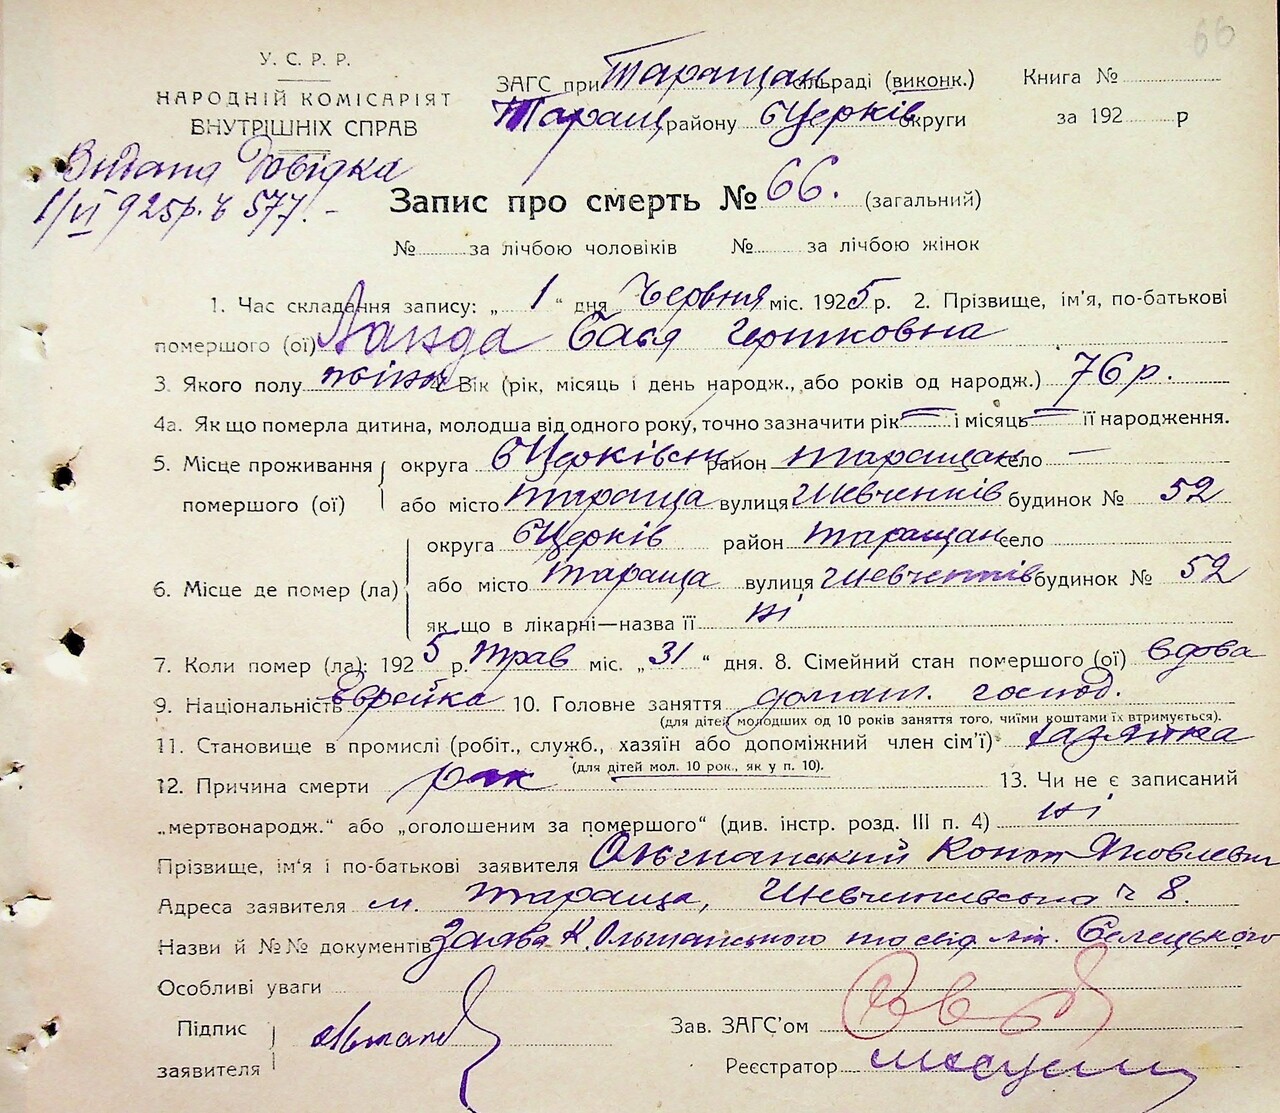 66
У. С. Р. Р.
НАРОДНІЙ КОМІСАРІЯТ
ВНУТРІШНІХ СПРАВ
Видана Довідка
1/VI 925р. № 577.-
ЗАГС при Таращан сільраді (виконк.)
Таращ району БЦерків округи
Книга №
за 192 р
Запис про смерть № 66. (загальний)
№ за лічбою чоловіків № за лічбою жінок
1. Час складання запису: „ 1 “ дня Червня міс. 1925 р. 2. Прізвище, ім'я, по-батькові
помершого (ої) Ланда Бася Гершковна
3. Якого полу жіноч 4. Вік (рік, місяць і день народж., або років од народж.) 76 р.
4а. Як що померла дитина, молодша від одного року, точно зазначити рік — і місяць — її народження.
5. Місце проживання округа БЦерківськ район Таращан село —
помершого (ої) або місто Тараща вулиця Шевченків будинок № 52
округа БЦерків район Таращан село
6. Місце де помер (ла) або місто Тараща вулиця Шевченків будинок № 52
як що в лікарні—назва її ні
7. Коли помер (ла): 1925 р. Трав міс. „ 31 “ дня. 8. Сімейний стан помершого (ої) вдова
9. Національність Єврейка 10. Головне заняття домаш. господ.
(для дітей молодших од 10 років заняття того, чиїми коштами їх втримується).
11. Становище в промислі (робіт., служб., хазяїн або допоміжний член сім'ї) хазяйка
(для дітей мол. 10 рок., як у п. 10).
12. Причина смерти рак 13. Чи не є записаний
„мертвонародж.“ або „оголошеним за помершого“ (див. інстр. розд. III п. 4) ні
Прізвище, ім'я і по-батькові заявителя Ольшанський Яковлевич
Адреса заявителя м. Тараща, Шевченківська ч 8.
Назви й №№ документів Заява К. Ольшанського та свід. лік. Селецького
Особливі уваги
Підпис
заявителя
Зав. ЗАГС'ом
Реєстратор